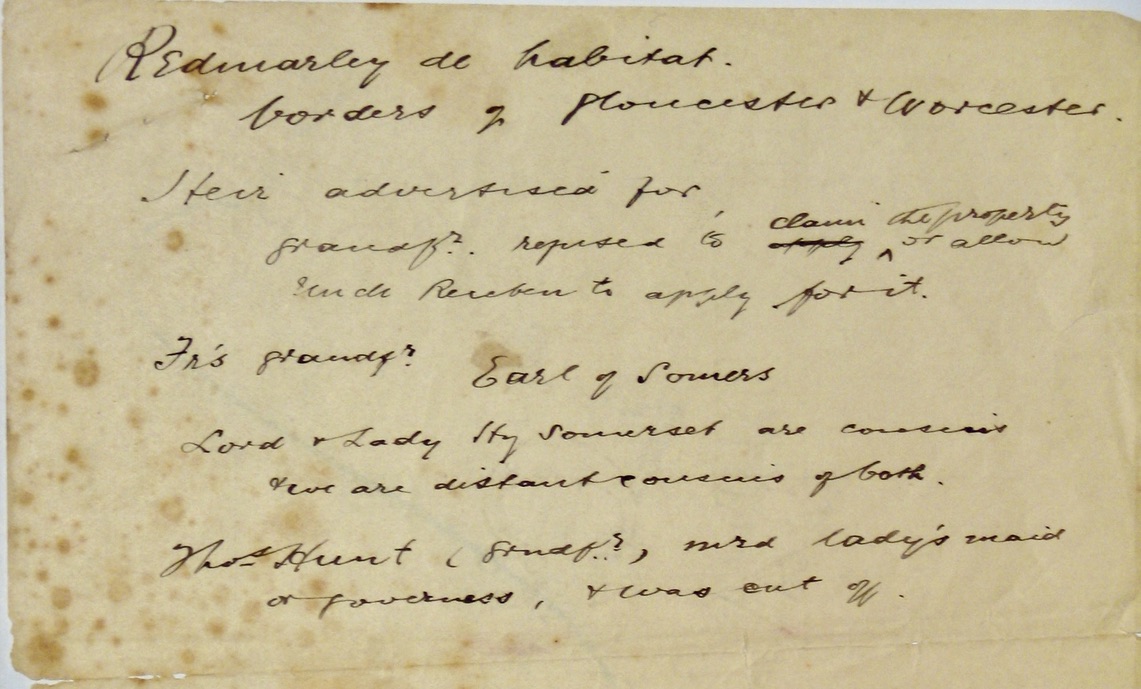 Redmarley de habitat.
borders of Gloucester & Worcester.
Heir advertised for,
grandfr. refused to claim the property or allow
Uncle Reuben to apply for it.
Fr's grandfr Earl of Somers
Lord & Lady Hy Somerset are cousins
& we are distant cousins of both.
Thos Hunt (grndfr.), mrd lady's maid
or governess, & was cut off.